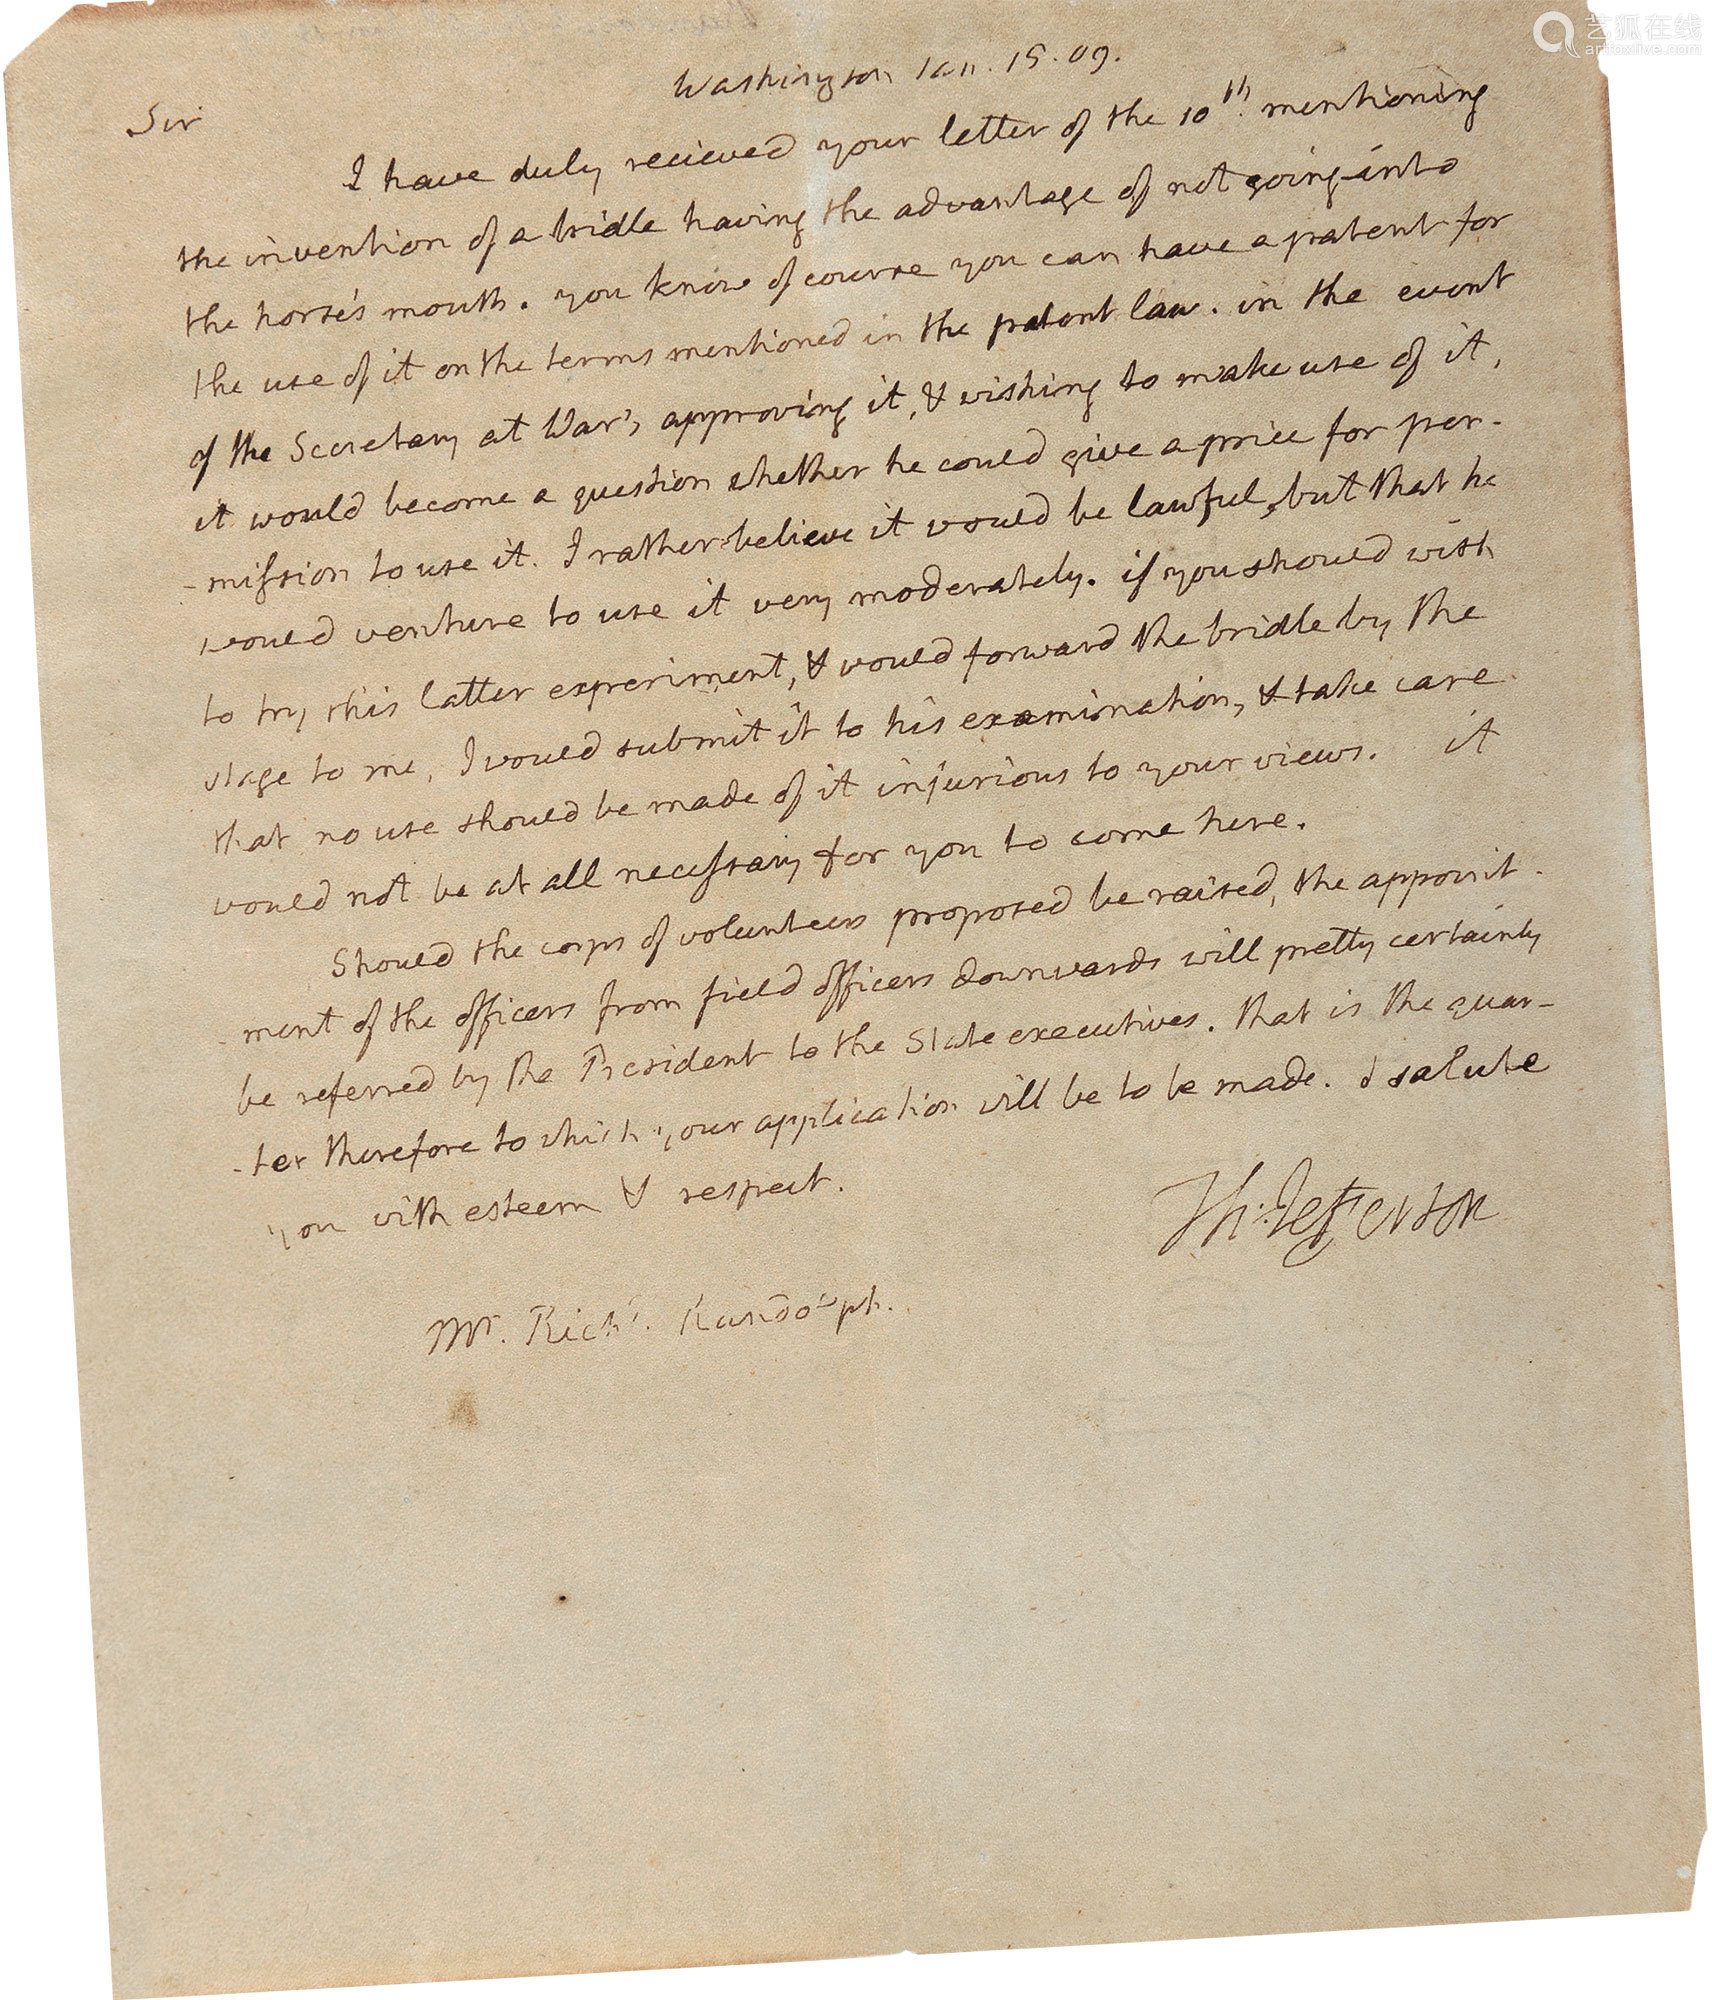 艺狐在线
artfoxlive.com
Washington Jan. 15. 09.
Sir
I have duly recieved your letter of the 10th. mentioning
the invention of a bridle having the advantage of not going into
the horse's mouth. you know of course you can have a patent for
the use of it on the terms mentioned in the patent law. in the event
of the Secretary at War's approving it, & wishing to make use of it,
it would become a question whether he could give a price for per-
-mission to use it. I rather believe it would be lawful, but that he
would venture to use it very moderately. if you should wish
to try this latter experiment, & would forward the bridle by the
stage to me, I would submit it to his examination, & take care
that no use should be made of it injurious to your views. it
would not be at all necessary for you to come here.
Should the corps of volunteers proposed be raised, the appoint-
-ment of the officers from field officers downwards will pretty certainly
be referred by the President to the State executives. that is the quar-
-ter therefore to which your application will be to be made. I salute
you with esteem & respect.
Th: Jefferson
Mr. Richd. Randolph.